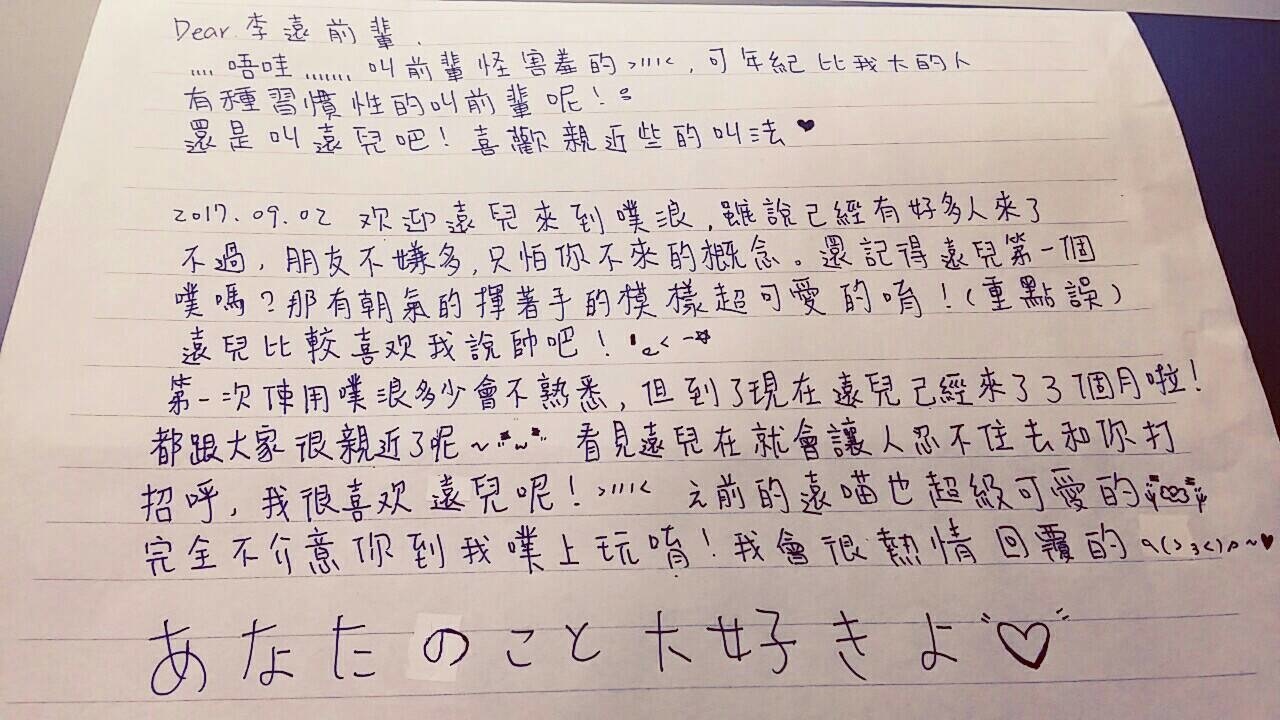 Dear. 李遠前輩.
.... 唔哇 ....... 叫前輩怪害羞的 >////<, 可年紀比我大的人
有種習慣性的叫前輩呢!
還是叫遠兒吧! 喜歡親近些的叫法 ♥
2017.09.02 欢迎遠兒來到噗浪, 雖說已經有好多人來了
不過, 朋友不嫌多, 只怕你不來的概念。還記得遠兒第一個
噗嗎? 那有朝氣的揮著手的模樣超可愛的唷! (重點誤)
遠兒比較喜欢我說帥吧!
第一次使用噗浪多少會不熟悉, 但到了現在遠兒已經來了3個月啦!
都跟大家很親近了呢~ 看見遠兒在就會讓人忍不住去和你打
招呼, 我很喜欢遠兒呢! >////< 之前的遠喵也超級可愛的
完全不介意你到我噗上玩唷! 我會很熱情回覆的 q(>3<)p~♥
あなたのこと大好きよ♡